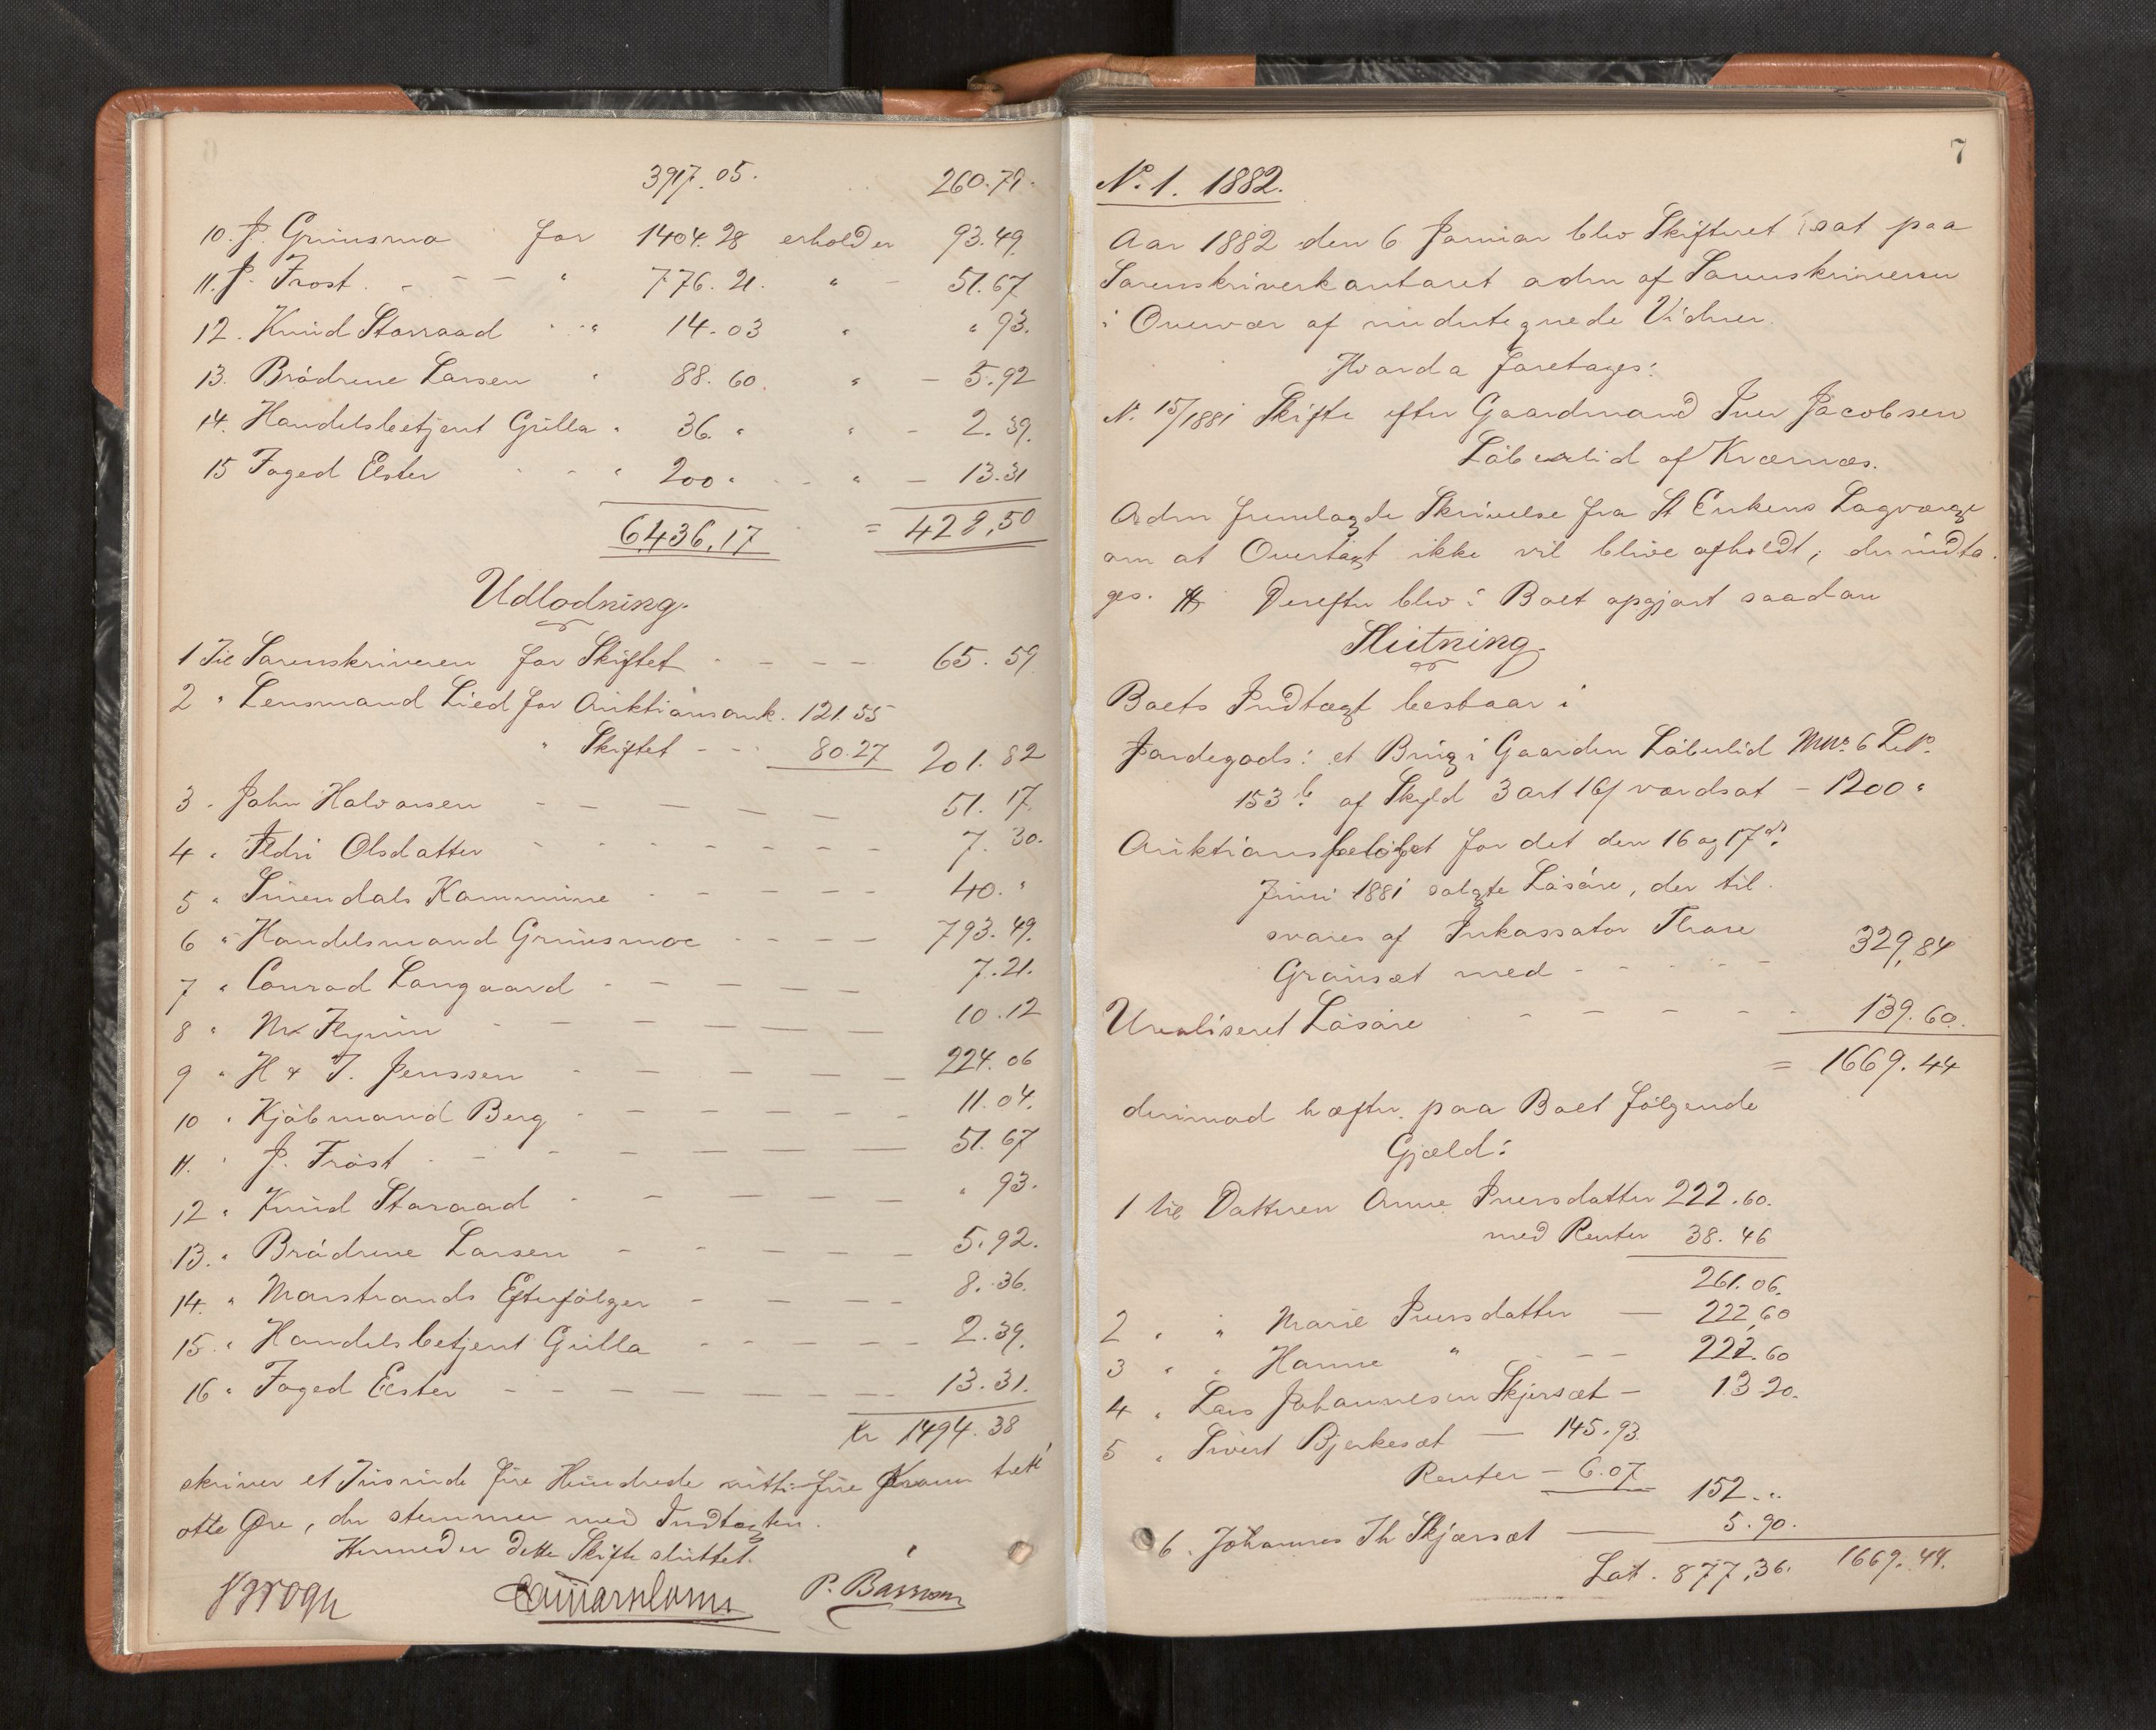 3917.05. 260.79.
10. J. Grüusmo for 1404.28 erholder 93.49.
11. J. Frost. - - - " 776.21. " - 51.67
12. Knud Storraad " " 14.03 " " 93.
13. Brödrene Larsen " 88.60. " - 5.92
14. Handelsbetjent Grilla " 36. " " - 2.39.
15 Foged Elster " 200 " - " - 13.31
6436,17 = 428,50
Udlodning.
1 Til Sorenskriveren for Skiftet - - - - 65.59
2 " Lensmand Lied for Auktionsomk. 121.55
" Skiftet - - - 80.27 201.82
3 " John Halvorsen - - - - - 51.17.
4 " Ildri Olsdatter - - - - - - - 7.30.
5 " Surendals Kommune - - - - - 40. "
6 " Handelsmand Grüusmoe - - - - 793.49.
7 " Conrad Langaard - - - - - 7.21.
8 " Flynn - - - - - - 10.12
9 " H & F. Jenssen - - - - - - 224.06
10 " Kjöbmand Berg - - - - - - 11.04.
11. " J. Frost - - - - - - - 51.67
12 " Knud Storaad - - - - - " 93.
13. " Brödrene Larsen - - - - - 5.92.
14. " Marstrands Efterfölger - - - - 8.36.
15. " Handelsbetjent Grilla - - - - - 2.39.
16 " Foged Elster - - - - - - - - 13.31.
Kr 1494.38
skriver et Tusinde fire Hundrede nitti fire Kroner tretti
otte Øre, der stemmer med Indtægten.
Hermed er dette Skifte sluttet.
Krogh P. Bævren
7
No. 1. 1882.
Aar 1882 den 6 Januar blev Skifteret sat paa
Sorenskriverkontoret adm af Sorenskriveren
i Overvær af undertegnede Vidner.
Hvorda foretages:
No. 15/1881 Skifte efter Gaardmand Iver Jacobsen
Löbeslid af Kvernæs.
Adm fremlagde Skrivelse fra St Enkens Lagværge
om at Overtagt ikke vil blive afholdt, der indta-
ges. Derefter blev Boet opgjort saadan
Slutning.
Boets Indtægt bestaar i
Jordegods: et Brug i Gaarden Löbeslid MNo. 6 LNo.
153 b. af Skyld 3 ort 16 f værdsat - 1200 "
Auktionsbelöbet for det den 16 og 17de
Juni 1881 solgte Lösöre, der til
svares af Inkassator Thore
Gröuset med - - - - - - 329,84
Urealiseret Lösöre - - - - - - 139.60.
= 1669.44
derimod hæfter paa Boet fölgende
Gjæld:
1 til Datteren Anne Iversdatter 222.60.
med Renter 38.46
261.06.
2 " " Marie Iversdatter - 222,60
3 " " Hanne " - - 222.60
4 " Lars Johannesen Skjersæt - 13 20.
5 " Sivert Bjerkesæt - 145.93.
Renter - 6.07. 152. "
6. Johannes Th Skjærsæt - 5.90.
Lat. 877,36. 1669.44.